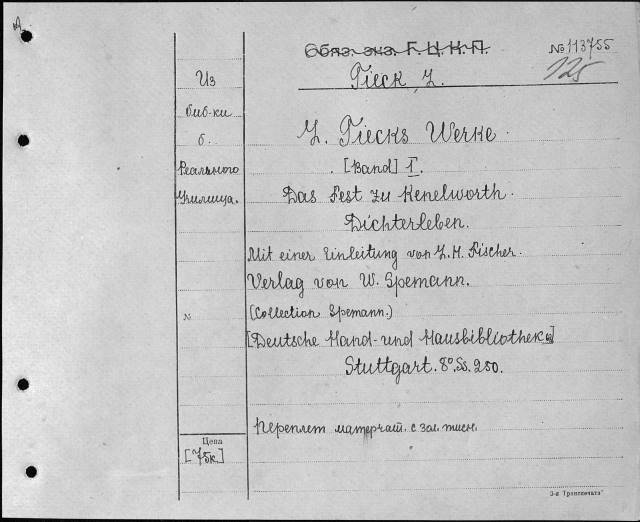 Обяз. экз. Г.Ц.К.П.
№ 113755
125
Tieck, L.
Из
биб-ки
б.
Реального
Училища.
L. Tiecks Werke.
[Band] I.
Das Fest zu Kenelworth.
Dichterleben.
Mit einer Einleitung von L.H. Fischer.
Verlag von W. Spemann.
№
(Collection Spemann.)
[Deutsche Hand- und Hausbibliothek]
Stuttgart. 8°. Ss. 250.
Переплет матерчат. с зол. тисн.
Цена
[75к.]
3-я Транспечать